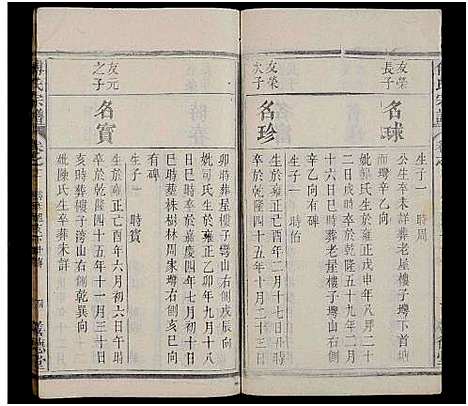 友榮長子
名球
生子一 時周
公生卒未詳葬老屋樓子塆山下首納
山辛乙向
妣郭氏生於雍正戊申年八月二十
二日戌時卒於乾隆五十九年二月
十六日時葬老屋樓子塆山右側
辛乙向有碑
友榮次子
名珍
生子一 時佑
生於雍正己酉年二月十七日未時
卒於乾隆四十五年十月二十三日
卯時葬屋樓子塆山右側戌辰向
妣司氏生於雍正乙卯年九月十八
戌時卒於嘉慶四年七月初七日
巳時葬株樹林周家塆右側亥巳向
有碑
友元之子
名實
生子一 時寶
生於雍正己酉年六月初六日午時
卒於乾隆四十五年十一月三十日
亥時葬樓子塆山右側乾巽向
妣陳氏生卒葬未詳
傅氏宗譜